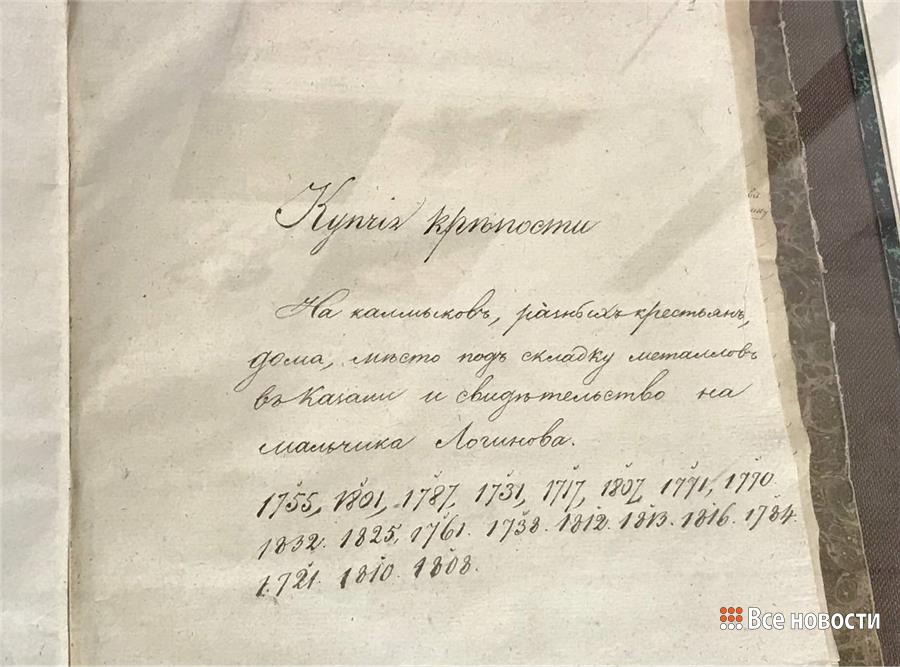 Купчія крѣпости
На калмыковъ, разныхъ крестьянъ,
дома, мѣсто подъ складку металловъ
въ Казани и свидѣтельство на
мальчика Логинова.
1755, 1801, 1787, 1731, 1717, 1807, 1771, 1770
1832. 1825, 1761. 1738. 1812. 1813. 1816. 1784.
1721. 1810. 1808.
Все новости